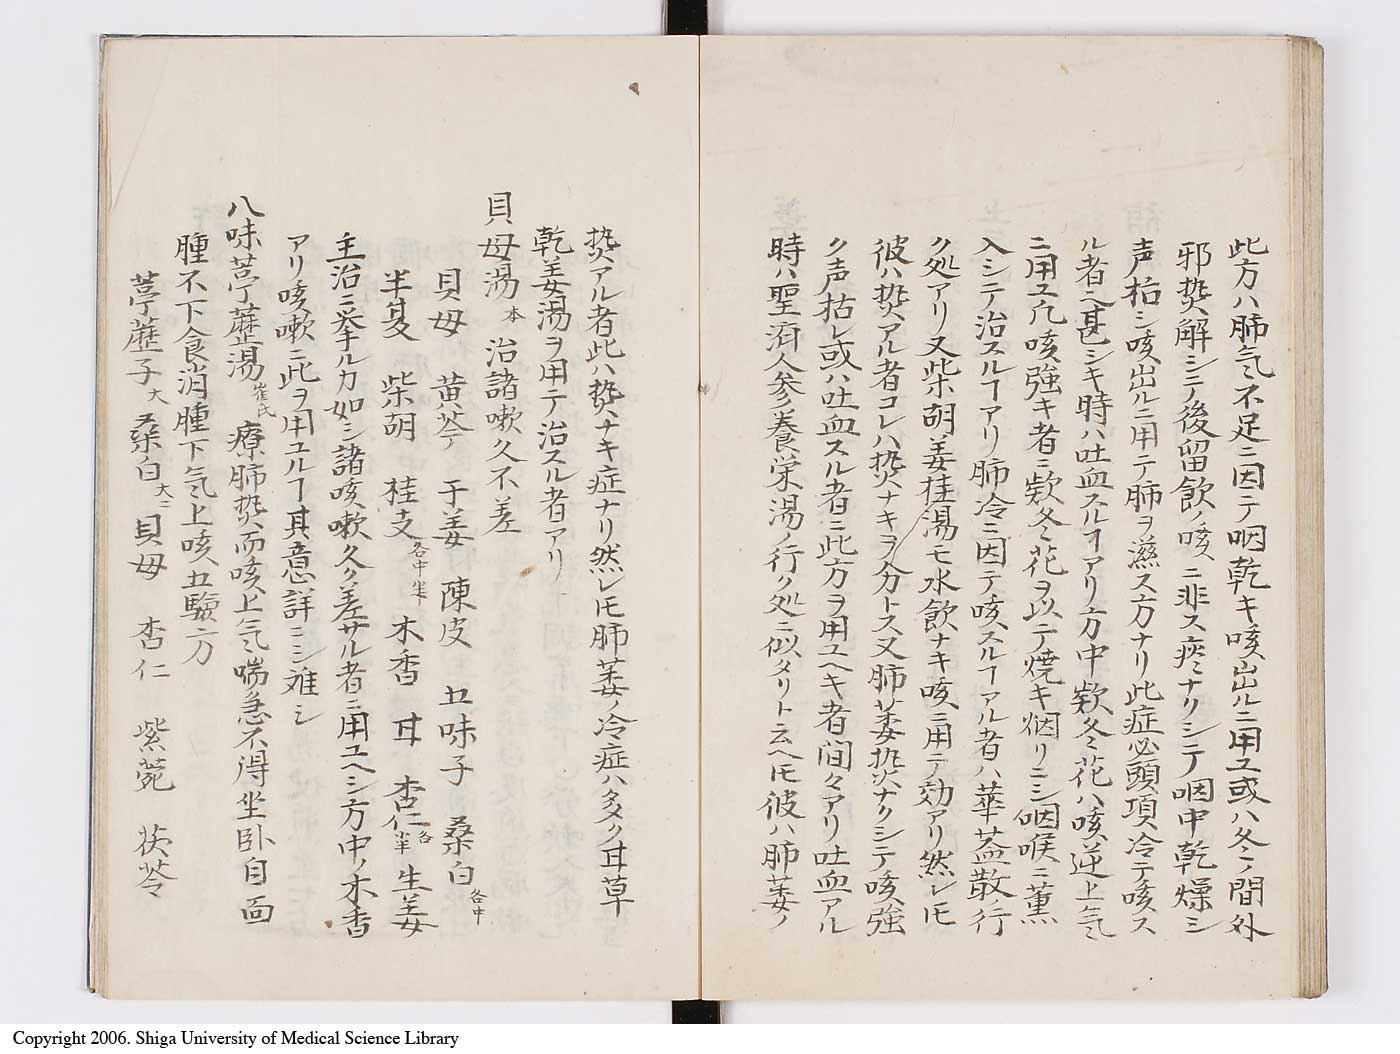 此方ハ肺気不足ニ因テ咽乾キ咳出ルニ用ユ或ハ冬ノ間外
邪熱解シテ後留飲ノ咳ニ非ス痰ナクシテ咽中乾燥シ
声枯シ咳出ルニ用テ肺ヲ滋ス方ナリ此症必頭項冷テ咳ス
ル者ニ甚シキ時ハ吐血スルヿアリ方中欵冬花ハ咳逆上気
ニ用ユ凡咳強キ者ニ欵冬花ヲ以テ焼キ烟リニシ咽喉ニ薫
入シテ治スルヿアリ肺冷ニ因テ咳スルヿアル者ハ華蓋散行
ク処アリ又柴胡姜桂湯モ水飲ナキ咳ニ用テ効アリ然レ𪜈
彼ハ熱アル者コレハ熱ナキヲ分トス又肺萎熱ナクシテ咳強
ク声枯レ或ハ吐血スル者ニ此方ヲ用ユヘキ者間々アリ吐血アル
時ハ聖済人参養栄湯ノ行ク処ニ似タリト云ヘ𪜈彼ハ肺萎ノ
熱アル者此ハ熱ナキ症ナリ然レ𪜈肺萎ノ冷症ハ多ク甘草
乾姜湯ヲ用テ治スル者アリ
貝母湯 本 治諸嗽久不差
貝母 黄芩 干姜 陳皮 五味子 桑白 各中
半夏 柴胡 桂支 各中半 木香 甘 杏仁 各半 生姜
主治ニ挙ルカ如シ諸咳嗽久ク差サル者ニ用ユヘシ方中ノ木香
アリ咳嗽ニ此ヲ用ユルヿ其意詳ニシ難シ
八味葶藶湯 崔氏 療肺熱而咳上気喘急不得坐卧身面
腫不下食消腫下気上咳五験方
葶藶子 大 桑白 大二 貝母 杏仁 紫菀 茯苓
Copyright 2006. Shiga University of Medical Science Library